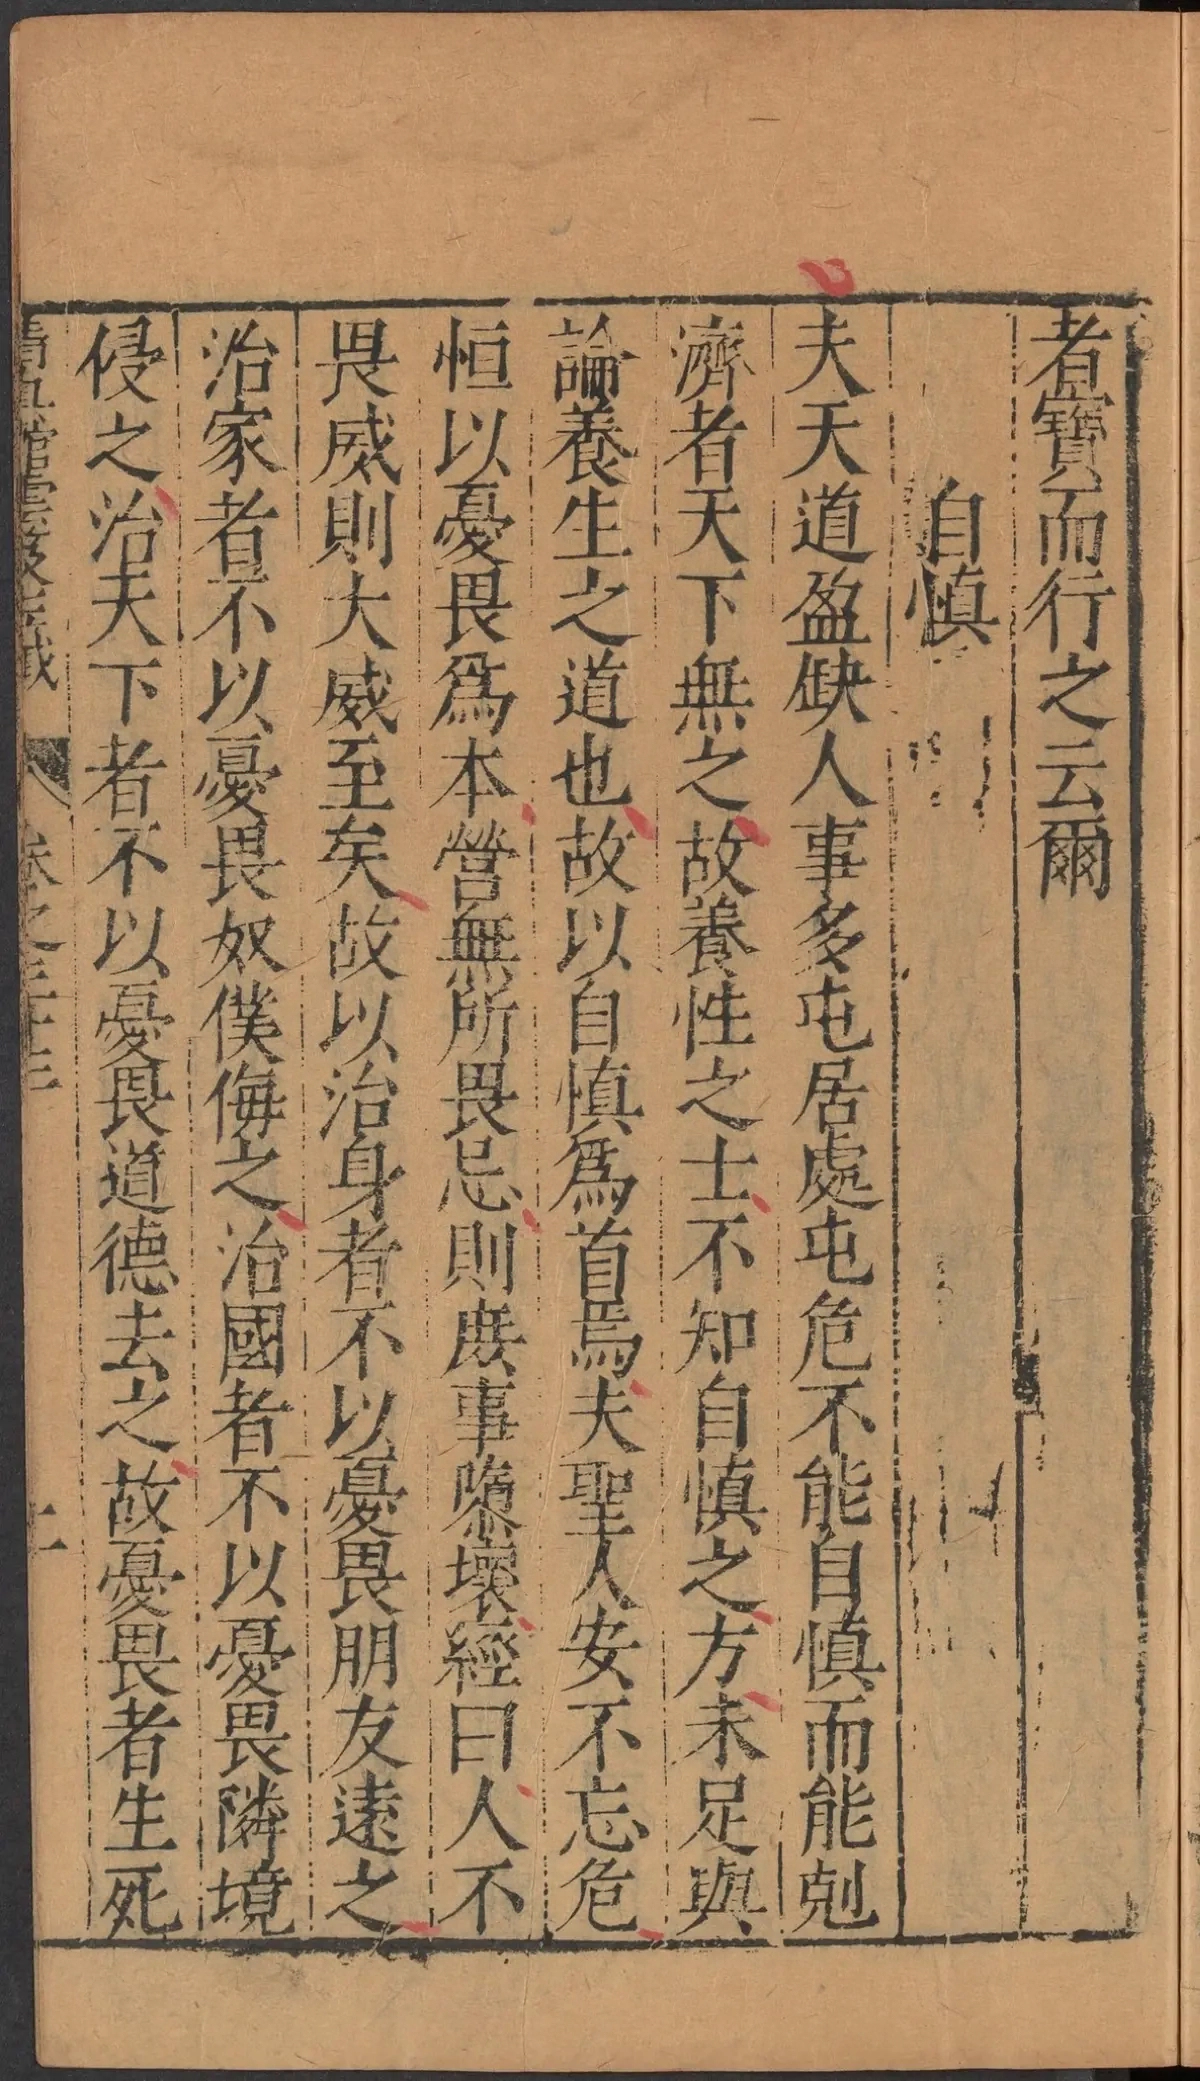 者寶而行之云爾
自慎
夫天道盈缺人事多屯居處屯危不能自慎而能剋
濟者天下無之故養性之士不知自慎之方未足與
論養生之道也故以自慎爲首焉夫聖人安不忘危
恒以憂畏爲本營無所畏忌則庶事隳壞經曰人不
畏威則大威至矣故以治身者不以憂畏朋友遠之
治家者不以憂畏奴僕侮之治國者不以憂畏隣境
侵之治天下者不以憂畏道德去之故憂畏者生死
清真館雲笈七籖 卷之三十三